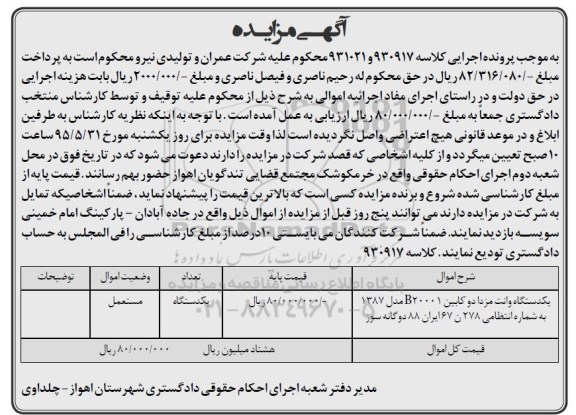 آگهی مزایده
به موجب پرونده اجرایی کلاسه ۹۳۰۹۱۷ و ۹۳۱۰۲۱ محکوم علیه شرکت عمران و تولیدی نیرو محکوم است به پرداخت
مبلغ -/۸۲/۳۱۶/۰۸۰ ریال در حق محکوم له رحیم ناصری و فیصل ناصری و مبلغ -/۲۰۰۰/۰۰۰ ریال بابت هزینه اجرایی
در حق دولت و در راستای اجرای مفاد اجرائیه اموالی به شرح ذیل از محکوم علیه توقیف و توسط کارشناس منتخب
دادگستری جمعاً به مبلغ -/۸۰/۰۰۰/۰۰۰ ریال ارزیابی به عمل آمده است. با توجه به اینکه نظریه کارشناس به طرفین
ابلاغ و در موعد قانونی هیچ اعتراضی واصل نگردیده است لذا وقت مزایده برای روز یکشنبه مورخ ۹۵/۵/۳۱ ساعت
۱۰ صبح تعیین میگردد و از کلیه اشخاصی که قصد شرکت در مزایده را دارند دعوت می شود که در تاریخ فوق در محل
شعبه دوم اجرای احکام حقوقی واقع در خرمکوشک مجتمع قضایی تندگویان اهواز حضور بهم رسانند. قیمت پایه از
مبلغ کارشناسی شده شروع و برنده مزایده کسی است که بالاترین قیمت را پیشنهاد نماید، ضمناً اشخاصیکه تمایل
به شرکت در مزایده دارند می توانند پنج روز قبل از مزایده از اموال ذیل واقع در جاده آبادان - پارکینگ امام خمینی
سویسه بازدید نمایند. ضمناً شرکت کنندگان می بایستی ۱۰ درصد از مبلغ کارشناسی را فی المجلس به حساب
دادگستری تودیع نمایند. کلاسه ۹۳۰۹۱۷
شرح اموال قیمت پایه تعداد وضعیت اموال توضیحات
یکدستگاه وانت مزدا دو کابین B۲۰۰۰۱ مدل ۱۳۸۷ -/۸۰/۰۰۰/۰۰۰ ریال یکدستگاه مستعمل
به شماره انتظامی ۲۷۸ ن ۶۷ ایران ۸۸ دوگانه سوز
قیمت کل اموال هشتاد میلیون ریال ۸۰/۰۰۰/۰۰۰ ریال
مدیر دفتر شعبه اجرای احکام حقوقی دادگستری شهرستان اهواز - چلداوی
پایگاه اطلاع رسانی مناقصه و مزایده
۰۲۱-۸۸۳۴۹۶۷۰-۵